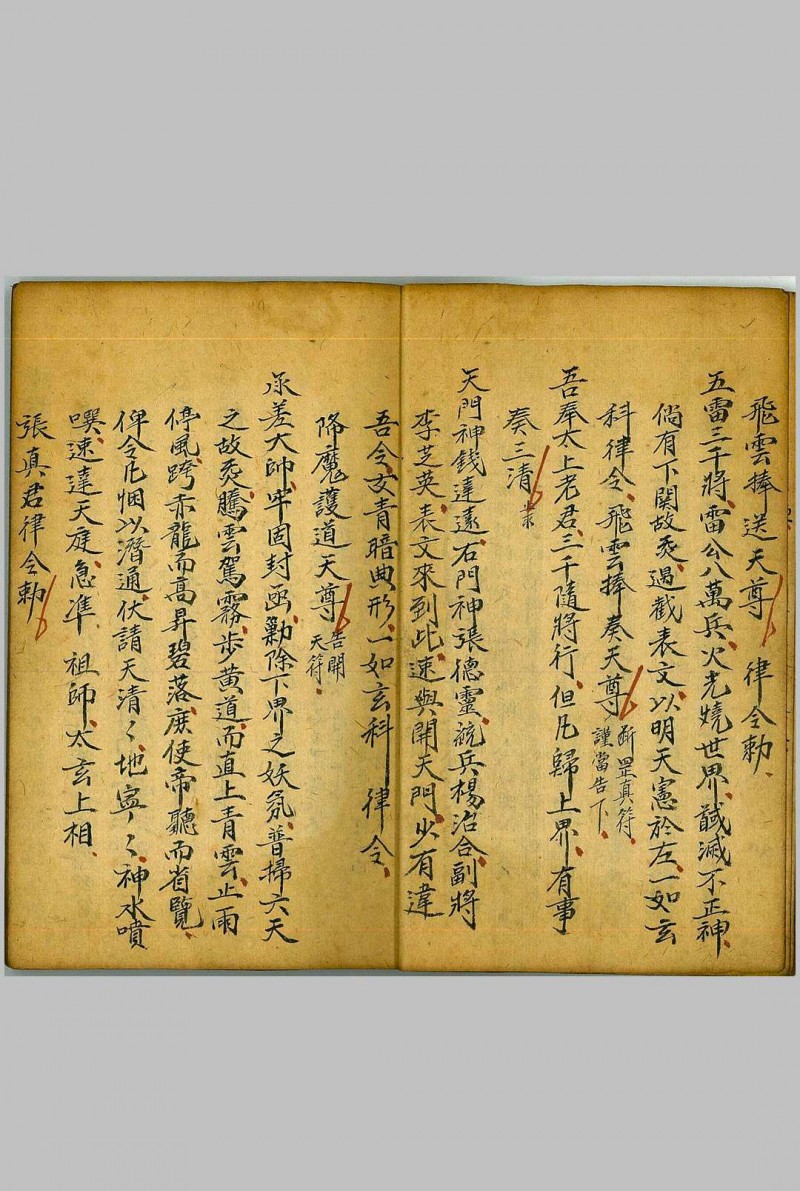 飛雲捧送天尊 律令勅
五雷三千將雷公八萬兵火光燒世界馘滅不正神
倘有下關故炁遏截表文以明天憲於左一如玄
科律令飛雲捧奏天尊 斷罡真符 謹當告下
吾奉太上老君三千隨將行但凡歸上界有事
奏三清
天門神錢達遠右門神張德靈統兵楊沿合副將
李芝英表文來到此速與開天門少有違
吾令女青暗典形一如玄科 律令
降魔護道天尊 告開 天符
承差大帥牢固封函勦除下界之妖氛普掃六天
之故炁騰雲駕霧步黄道而直上青雲止雨
停風跨赤龍而高昇碧落庶使帝聽而省覽
俾令凡悃以潛通伏請天清〻地寧〻神水噴
噀速達天庭急准 祖師太玄上相
張真君律令勅